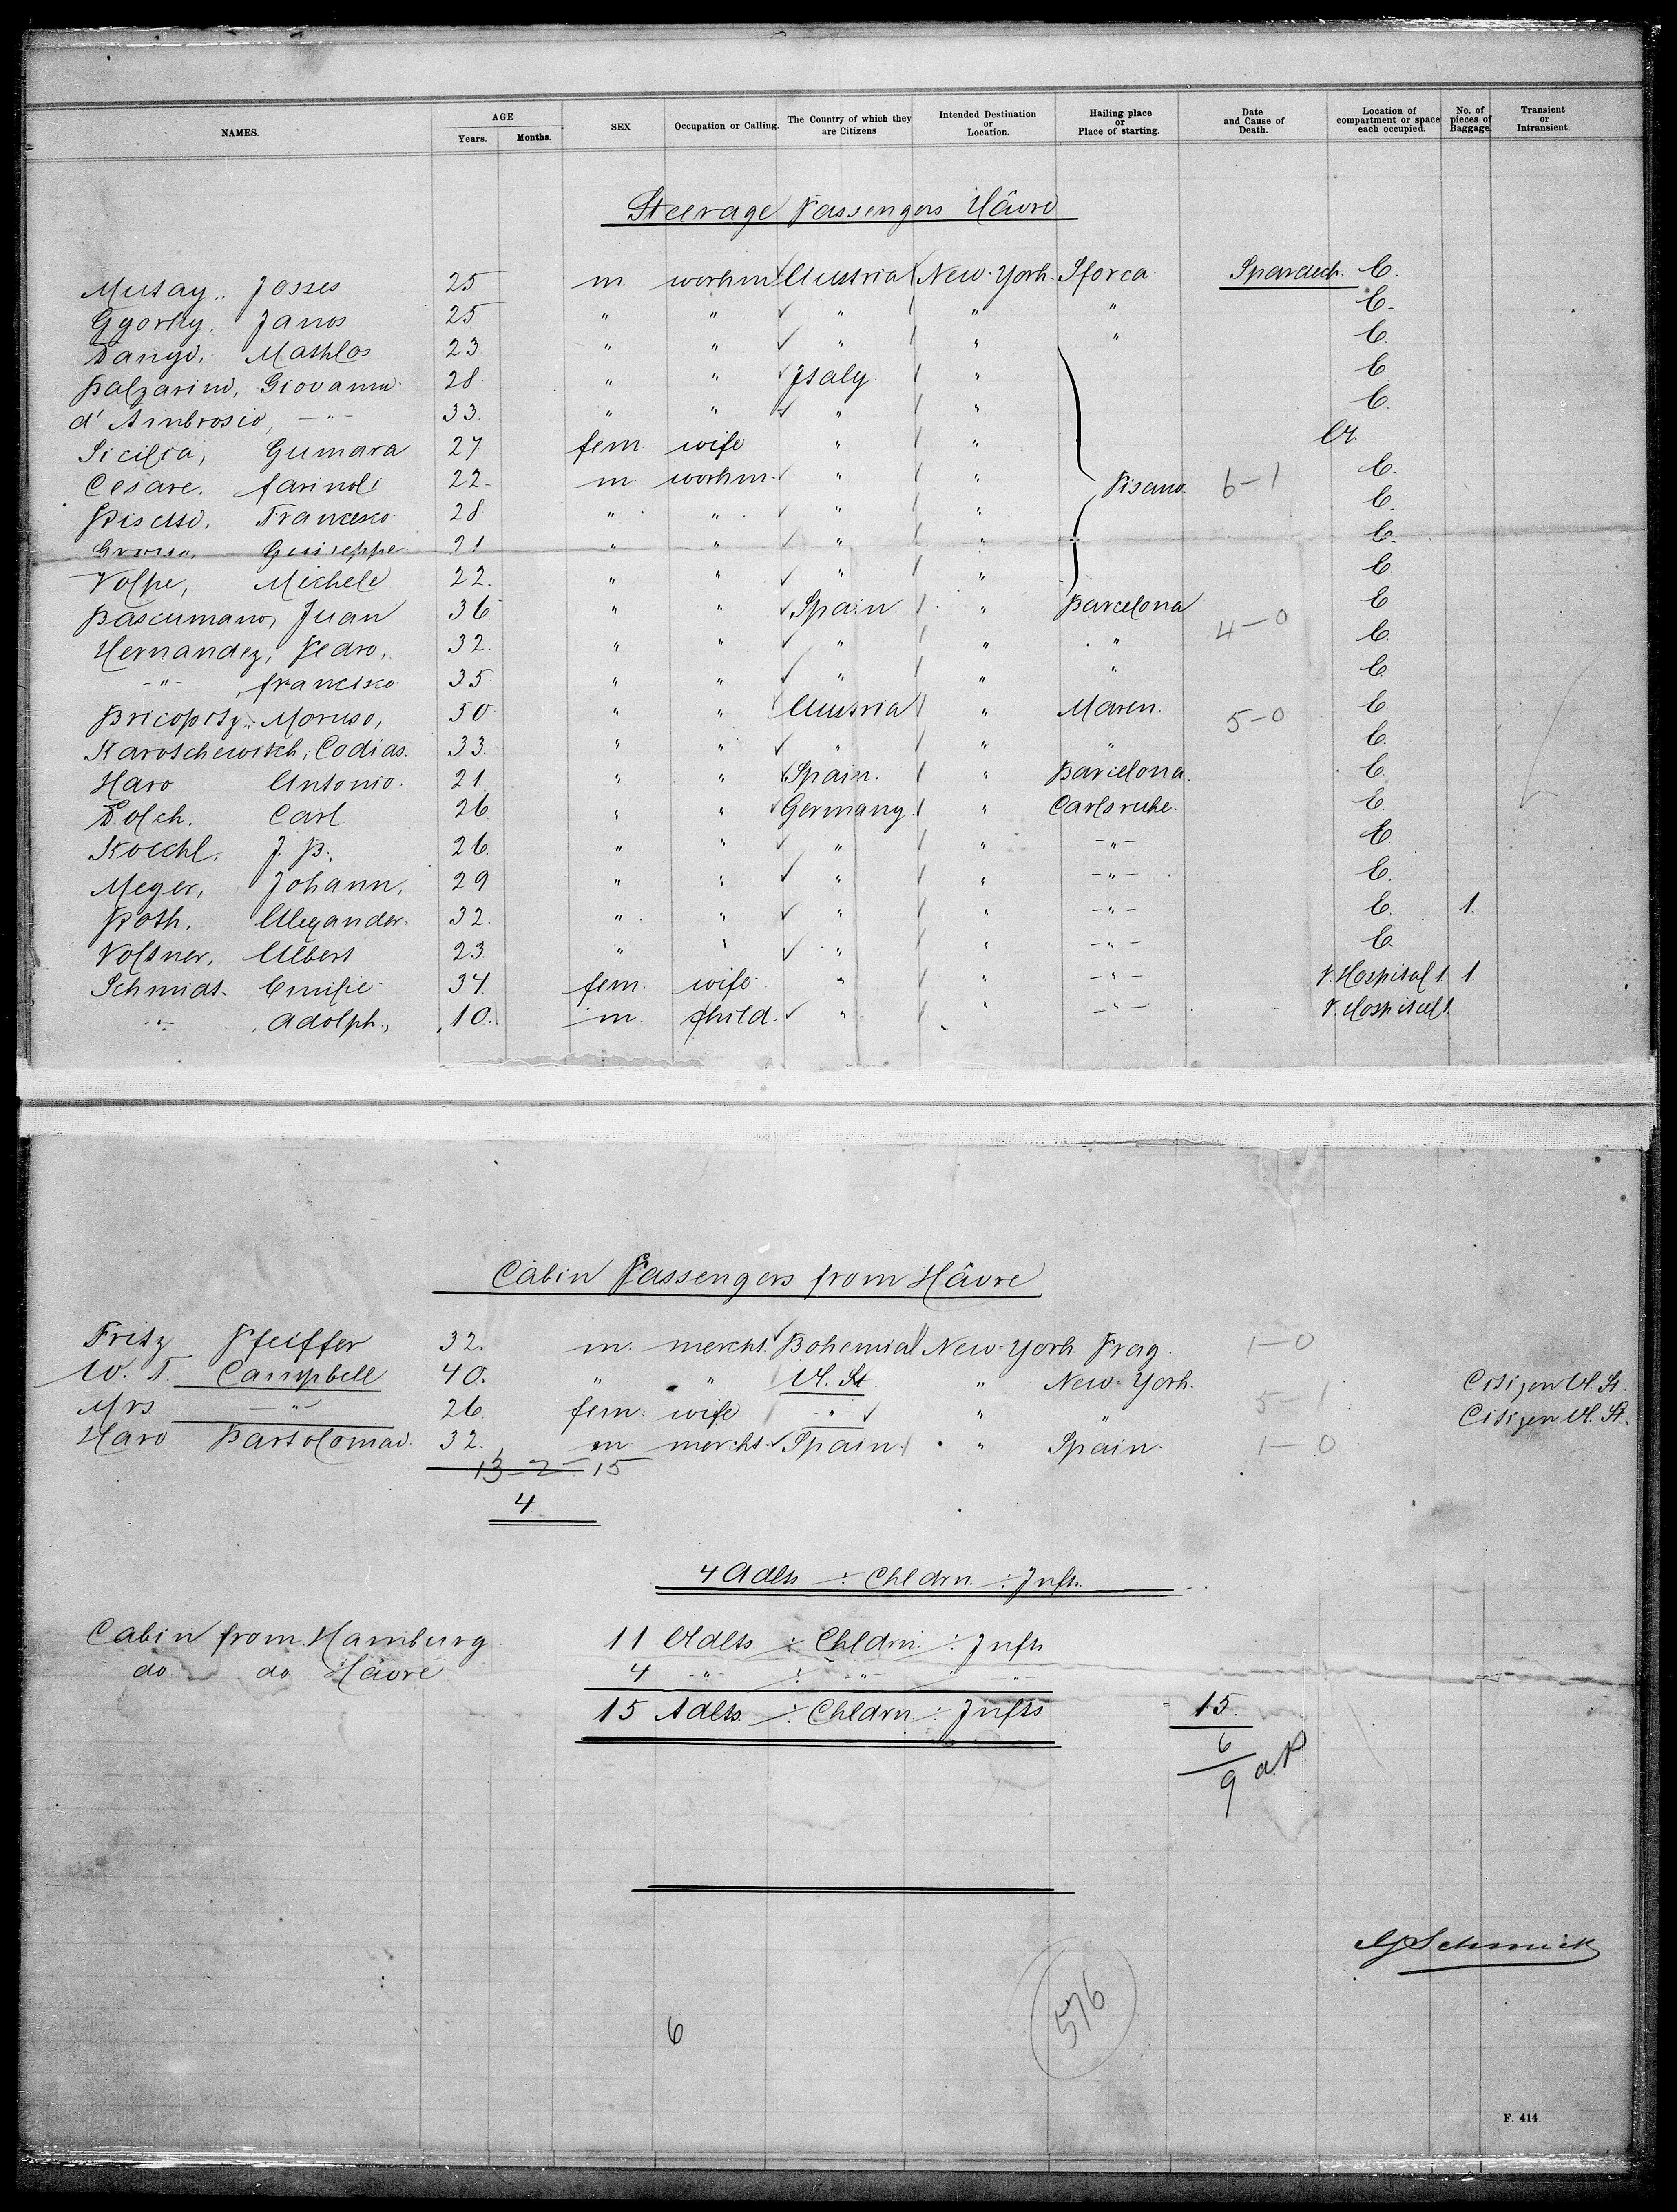 NAMES. AGE Years. Months. SEX Occupation or Calling. The Country of which they are Citizens Intended Destination or Location. Hailing place or Place of starting. Date and Cause of Death. Location of compartment or space each occupied. No. of pieces of Baggage. Transient or Intransient.
Steerage Passengers Hâvre
Mutay, Josses 25 m. workm Austria New-York. Sforca C.
Ggorky, Janos 25 " " " " " C.
Dangi, Mathlos 23 " " " " " C.
Balzarini, Giovanni 28 " " Italy. " C
d'Ambrosio, -"- 33. " " " " C.
Sicilia, Gumara 27 fem. wife " "
Cesare, farinoli 22. m. workm. " " Pisano. 6-1 C.
Pisetti, Francesco 28 " " " " C.
Grosso, Guiseppe 21 " " " " C.
Volpe, Michele 22. " " " " C.
Bascumano, Juan 36 " " Spain. " Barcelona 4-0 C
Hernandez, Pedro, 32 " " " " " C.
-"- francisco 35 " " " " " C.
Bricopitz, Moruso, 50 " " Austria " Maren. 5-0 C.
Staroschewitch, Codias. 33 " " " " " C.
Haro Antonio. 21 " " Spain. " Barcelona. C.
Dolch. Carl 26 " " Germany. " Carlsruhe. C.
Koechl, J. B., 26. " " " " -"- C.
Meyer, Johann, 29 " " " " -"- C.
Roth, Alexander. 32. " " " " -"- C. 1.
Voltner, Albert 23. " " " " -"- C.
Schmidt. Emilie 34 fem. wife " " -"- V. Hospital 1 1.
-"- Adolph., 10. m. child. " " -"- V. Hospital 1
Cabin Passengers from Hâvre
Fritz Pfeiffer 32. m. mercht. Bohemia New-York. Prag. 1-0
W. T. Campbell 40. " " U. St. " New-York. Citizen U. St.
Mrs -"- 26. fem. wife " " " 5-1 Citizen U. St.
Haro Bartolomao. 32. m. mercht. Spain " Spain. 1-0
13-2-15
4
4 Adlts ÷ Chldrn. ÷ Infts.
Cabin from Hamburg 11 Adlts. ÷ Chldrn. ÷ Infts
do. do Hâvre 4 -"- ÷ -"- " -"-
15 Adlts. ÷ Chldrn. ÷ Infts = 15.
6
9 aP
Schmick
576
6
F. 414.